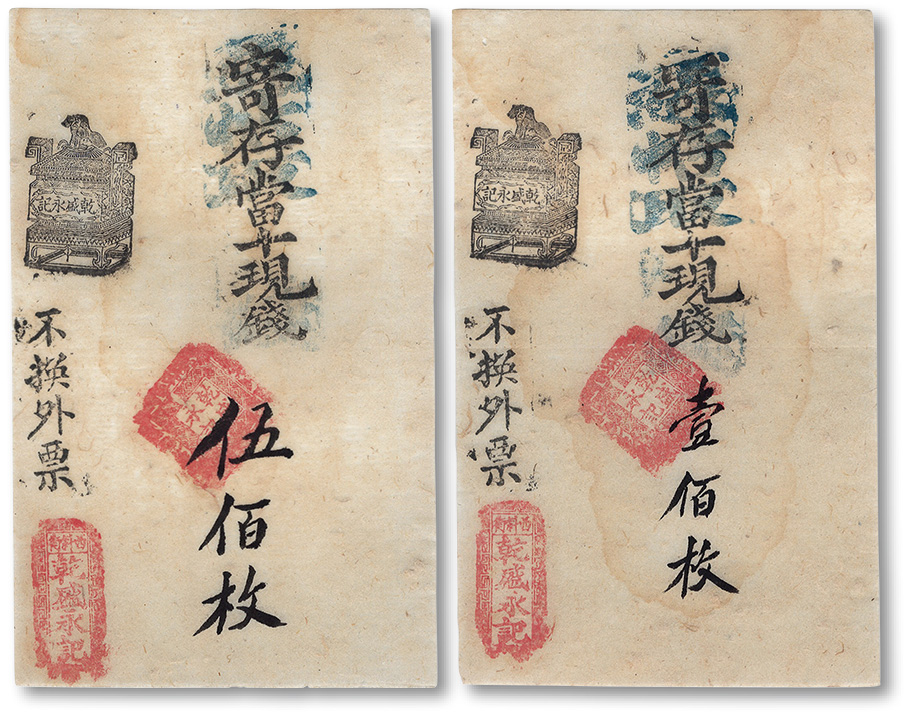 寄存當十現錢
伍佰枚
乾盛永記
不換外票
西斜街
乾盛永記
寄存當十現錢
壹佰枚
乾盛永記
不換外票
西斜街
乾盛永記